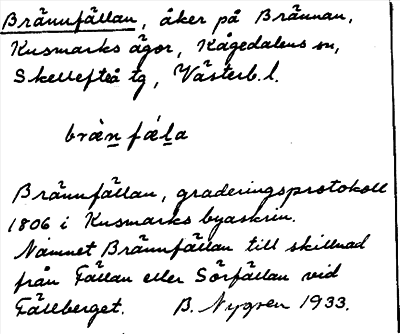 Brännfällan, åker på Brännan,
Kusmarks ägor, Kågedalens sn,
Skellefteå tg, Västerb. l.
bräṉ fäḻa
Brännfällan, graderingsprotokoll
1806 i Kusmarks byaskrin.
Namnet Brännfällan till skillnad
från Fällan eller Sörfällan vid
Fällberget. B. Nygren 1933.